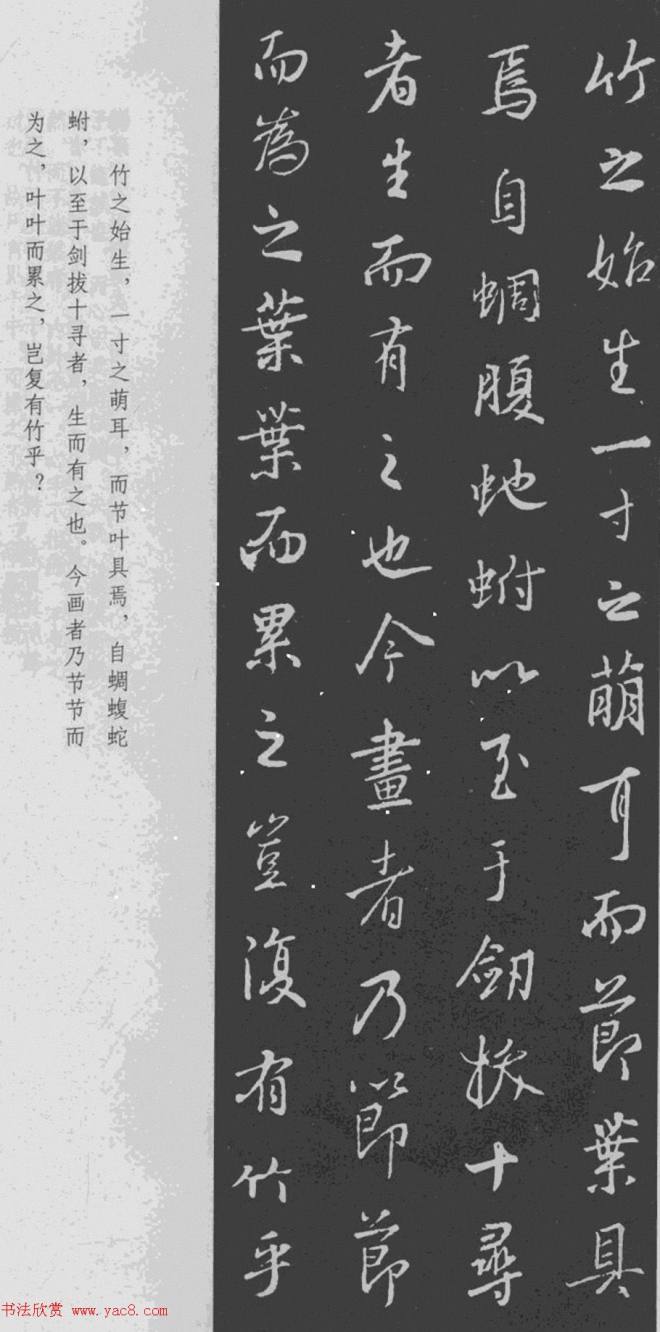 竹之始生一寸之萌耳而節葉具
焉自蜩腹虵蚹以至于劒拔十尋
者生而有之也今畫者乃節節
而為之葉葉而累之豈復有竹乎
竹之始生，一寸之萌耳，而节叶具焉，自蜩蝮蛇
蚹，以至于剑拔十寻者，生而有之也。今画者乃节节而
为之，叶叶而累之，岂复有竹乎？
书法欣赏 www.yac8.com